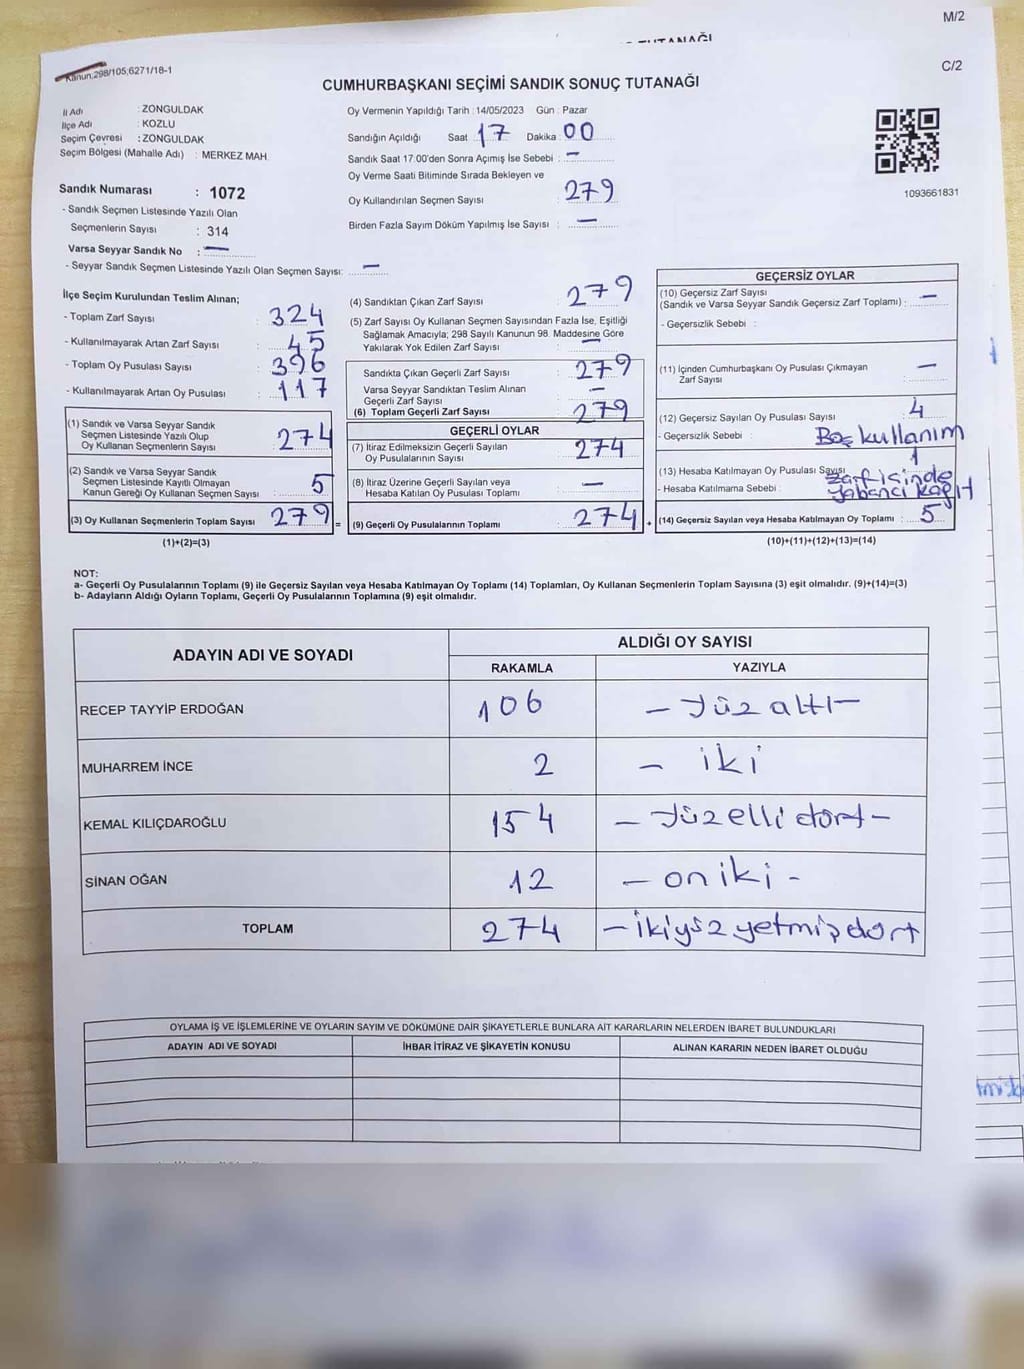 M/2
TUTANAĞI
Kanun:298/105;6271/18-1
C/2
CUMHURBAŞKANI SEÇİMİ SANDIK SONUÇ TUTANAĞI
İl Adı : ZONGULDAK
İlçe Adı : KOZLU
Seçim Çevresi : ZONGULDAK
Seçim Bölgesi (Mahalle Adı) : MERKEZ MAH.
Oy Vermenin Yapıldığı Tarih : 14/05/2023 Gün : Pazar
Sandığın Açıldığı Saat 17 Dakika 00
Sandık Saat 17:00'den Sonra Açımış İse Sebebi : —
Oy Verme Saati Bitiminde Sırada Bekleyen ve
Oy Kullandırılan Seçmen Sayısı : 279
Birden Fazla Sayım Döküm Yapılmış İse Sayısı : —
1093661831
Sandık Numarası : 1072
- Sandık Seçmen Listesinde Yazılı Olan
Seçmenlerin Sayısı : 314
Varsa Seyyar Sandık No : —
- Seyyar Sandık Seçmen Listesinde Yazılı Olan Seçmen Sayısı: —
İlçe Seçim Kurulundan Teslim Alınan;
- Toplam Zarf Sayısı : 324
- Kullanılmayarak Artan Zarf Sayısı : 45
- Toplam Oy Pusulası Sayısı : 396
- Kullanılmayarak Artan Oy Pusulası : 117
(1) Sandık ve Varsa Seyyar Sandık
Seçmen Listesinde Yazılı Olup
Oy Kullanan Seçmenlerin Sayısı : 274
(2) Sandık ve Varsa Seyyar Sandık
Seçmen Listesinde Kayıtlı Olmayan
Kanun Gereği Oy Kullanan Seçmen Sayısı : 5
(3) Oy Kullanan Seçmenlerin Toplam Sayısı : 279 =
(1)+(2)=(3)
(4) Sandıktan Çıkan Zarf Sayısı : 279
(5) Zarf Sayısı Oy Kullanan Seçmen Sayısından Fazla İse, Eşitliği
Sağlamak Amacıyla; 298 Sayılı Kanunun 98. Maddesine Göre
Yakılarak Yok Edilen Zarf Sayısı : —
Sandıkta Çıkan Geçerli Zarf Sayısı : 279
Varsa Seyyar Sandıktan Teslim Alınan
Geçerli Zarf Sayısı : —
(6) Toplam Geçerli Zarf Sayısı : 279
GEÇERLİ OYLAR
(7) İtiraz Edilmeksizin Geçerli Sayılan
Oy Pusulalarının Sayısı : 274
(8) İtiraz Üzerine Geçerli Sayılan veya
Hesaba Katılan Oy Pusulası Toplamı : —
(9) Geçerli Oy Pusulalarının Toplamı : 274 +
GEÇERSİZ OYLAR
(10) Geçersiz Zarf Sayısı
(Sandık ve Varsa Seyyar Sandık Geçersiz Zarf Toplamı) : —
- Geçersizlik Sebebi :
(11) İçinden Cumhurbaşkanı Oy Pusulası Çıkmayan
Zarf Sayısı : —
(12) Geçersiz Sayılan Oy Pusulası Sayısı : 4
- Geçersizlik Sebebi : Boş kullanım
(13) Hesaba Katılmayan Oy Pusulası Sayısı : 1
- Hesaba Katılmama Sebebi : zarf içinde
yabancı kağıt
(14) Geçersiz Sayılan veya Hesaba Katılmayan Oy Toplamı : 5
(10)+(11)+(12)+(13)=(14)
NOT:
a- Geçerli Oy Pusulalarının Toplamı (9) ile Geçersiz Sayılan veya Hesaba Katılmayan Oy Toplamı (14) Toplamları, Oy Kullanan Seçmenlerin Toplam Sayısına (3) eşit olmalıdır. (9)+(14)=(3)
b- Adayların Aldığı Oyların Toplamı, Geçerli Oy Pusulalarının Toplamına (9) eşit olmalıdır.
ADAYIN ADI VE SOYADI ALDIĞI OY SAYISI
RAKAMLA YAZIYLA
RECEP TAYYİP ERDOĞAN 106 — Yüz altı —
MUHARREM İNCE 2 — iki
KEMAL KILIÇDAROĞLU 154 — Yüzelli dört —
SİNAN OĞAN 12 — on iki -
TOPLAM 274 — ikiyüz yetmiş dört
OYLAMA İŞ VE İŞLEMLERİNE VE OYLARIN SAYIM VE DÖKÜMÜNE DAİR ŞİKAYETLERLE BUNLARA AİT KARARLARIN NELERDEN İBARET BULUNDUKLARI
ADAYIN ADI VE SOYADI İHBAR İTİRAZ VE ŞİKAYETİN KONUSU ALINAN KARARIN NEDEN İBARET OLDUĞU